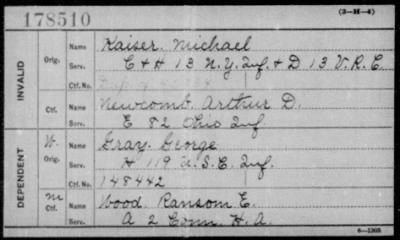 178510
(3-H-4)
INVALID
Orig. Name Kaiser, Michael
Serv. C & H 13 N.Y. Inf. & D 13 V.R.C.
Ctf. No.
Ctf. Name Newcomb, Arthur D.
Serv. E 82 Ohio Inf
DEPENDENT
W. Orig. Name Gray, George
Serv. H 119 U.S.C. Inf.
Ctf. No. 148442
M Ctf. Name Wood, Ransom E.
Serv. A 2 Conn. H.A.
6-1303